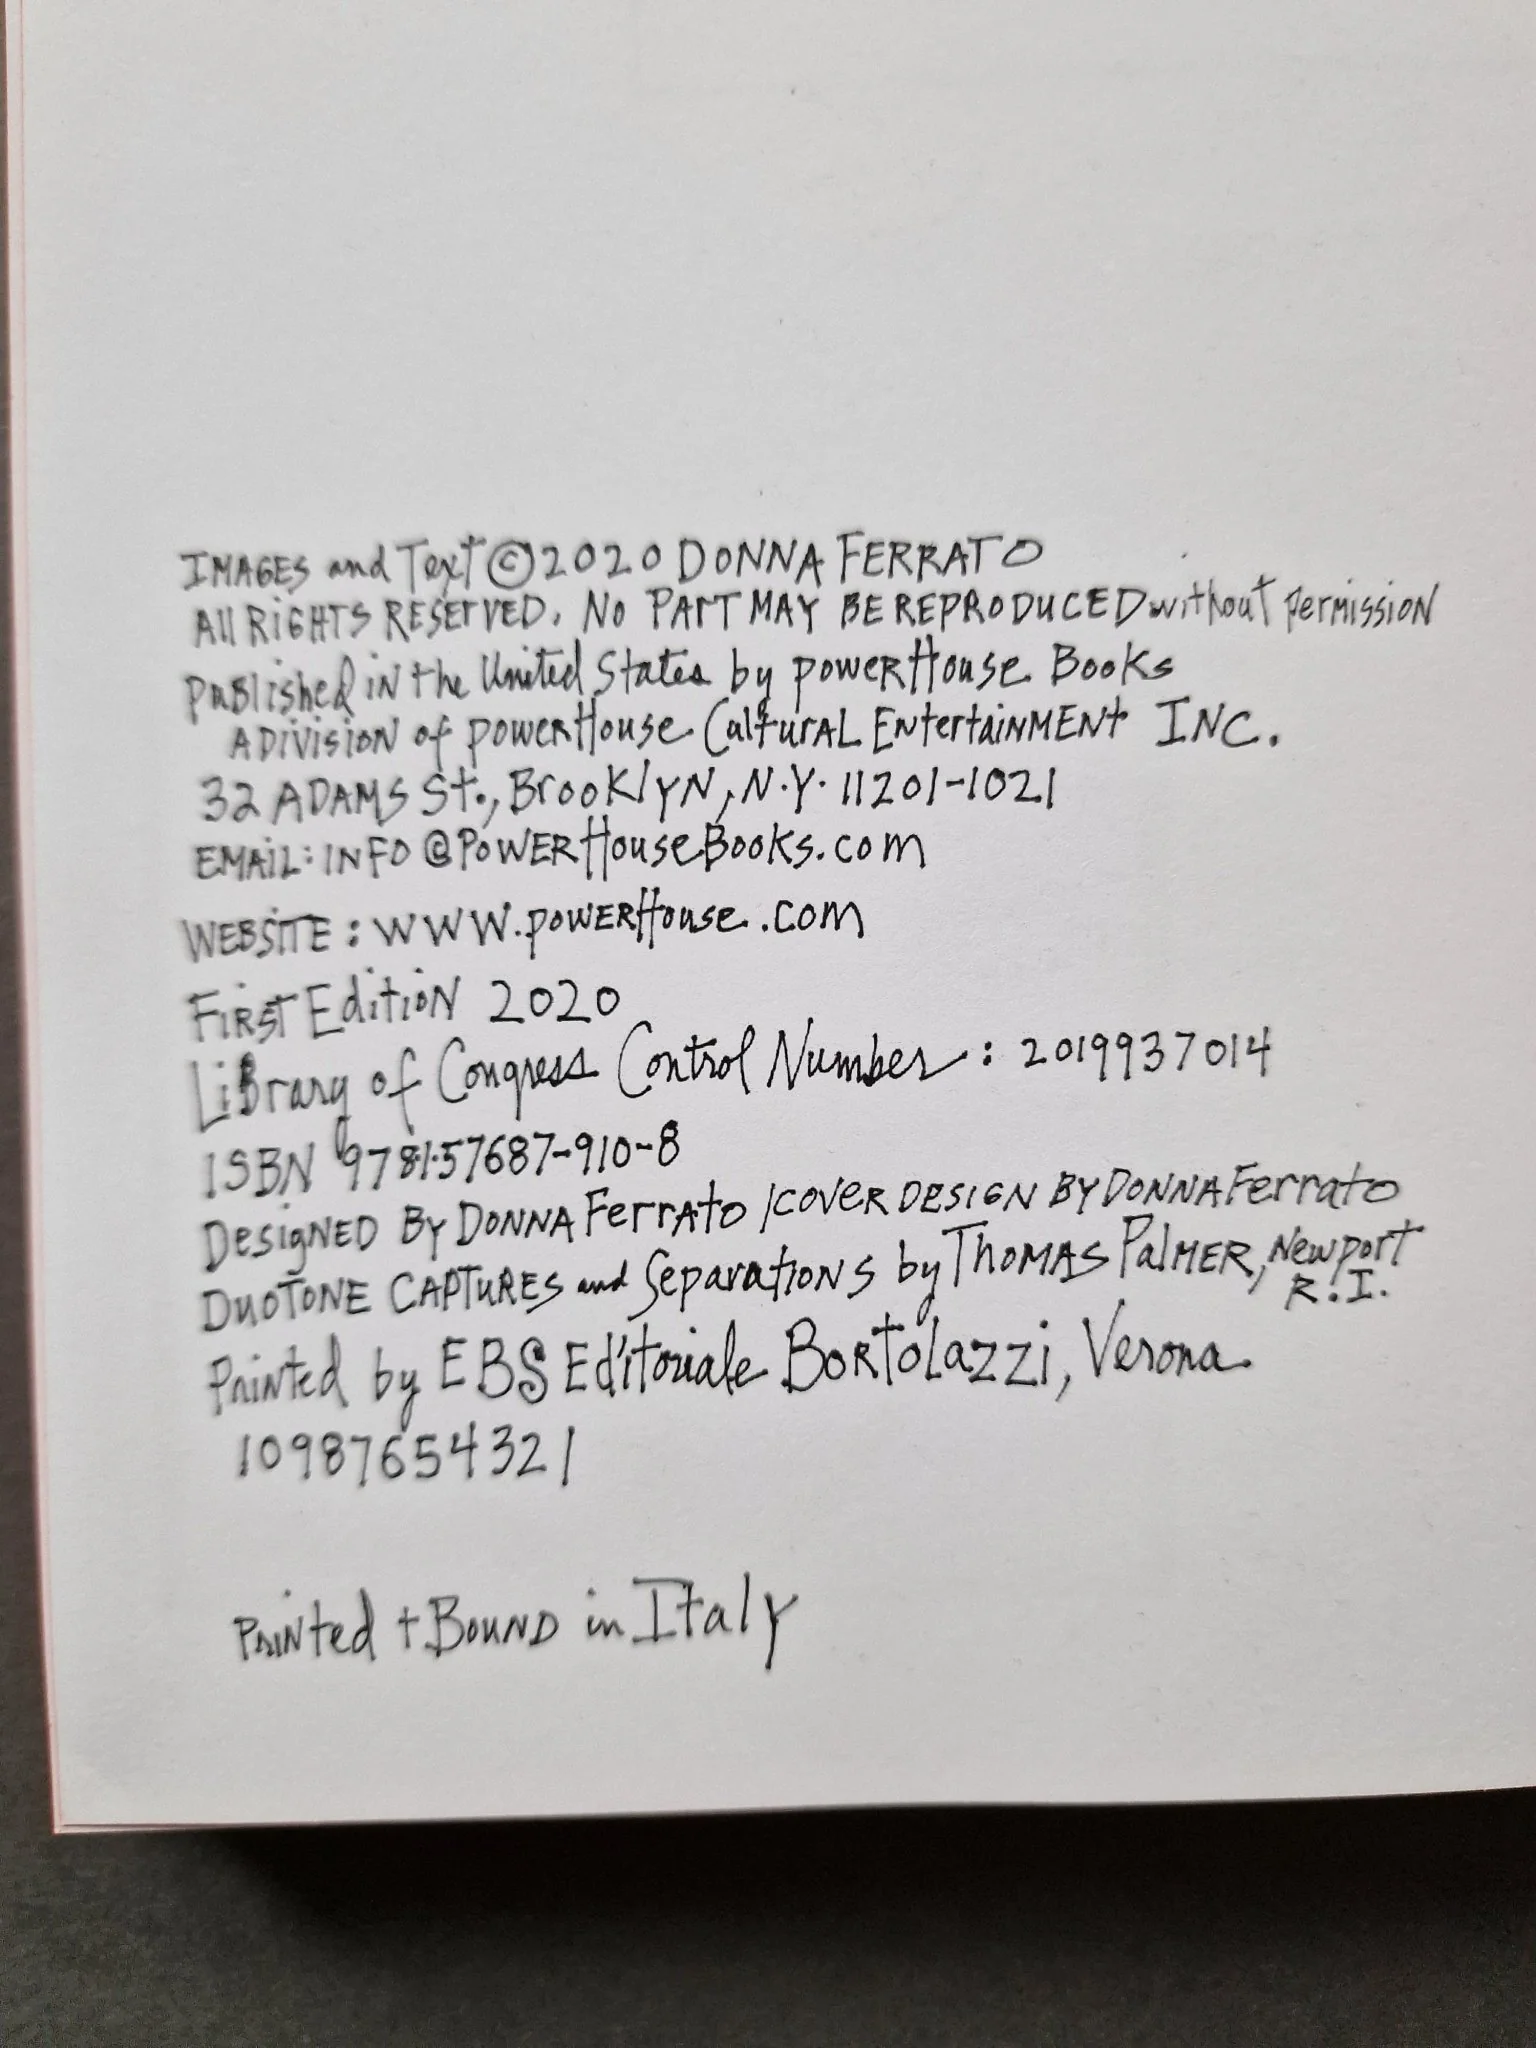 IMAGES and Text © 2020 DONNA FERRATO
All RiGHTS RESERVED. NO PART MAY BE REPRODUCED without permission
PuBlished in the United States by powerHouse Books
A Division of powerHouse CulturAL EntertainMENt INC.
32 ADAMS St., BrooKlyN, N.Y. 11201-1021
EMAiL: INFO @POWERHouseBooks.com
WEBSITE: WWW.powerHouse.com
First Edition 2020
LiBrary of Congress Control Number: 2019937014
ISBN 978-1-57687-910-8
DesigNED By DONNA FerrAto / COVER DESIGN BY DONNA Ferrato
DUOTONE CAPTUREs and Separations by THOMAS PalMER, Newport
R.I.
Printed by EBS Editoriale BortoLazzi, Verona
10987654321
PRiNted + BOUND in Italy